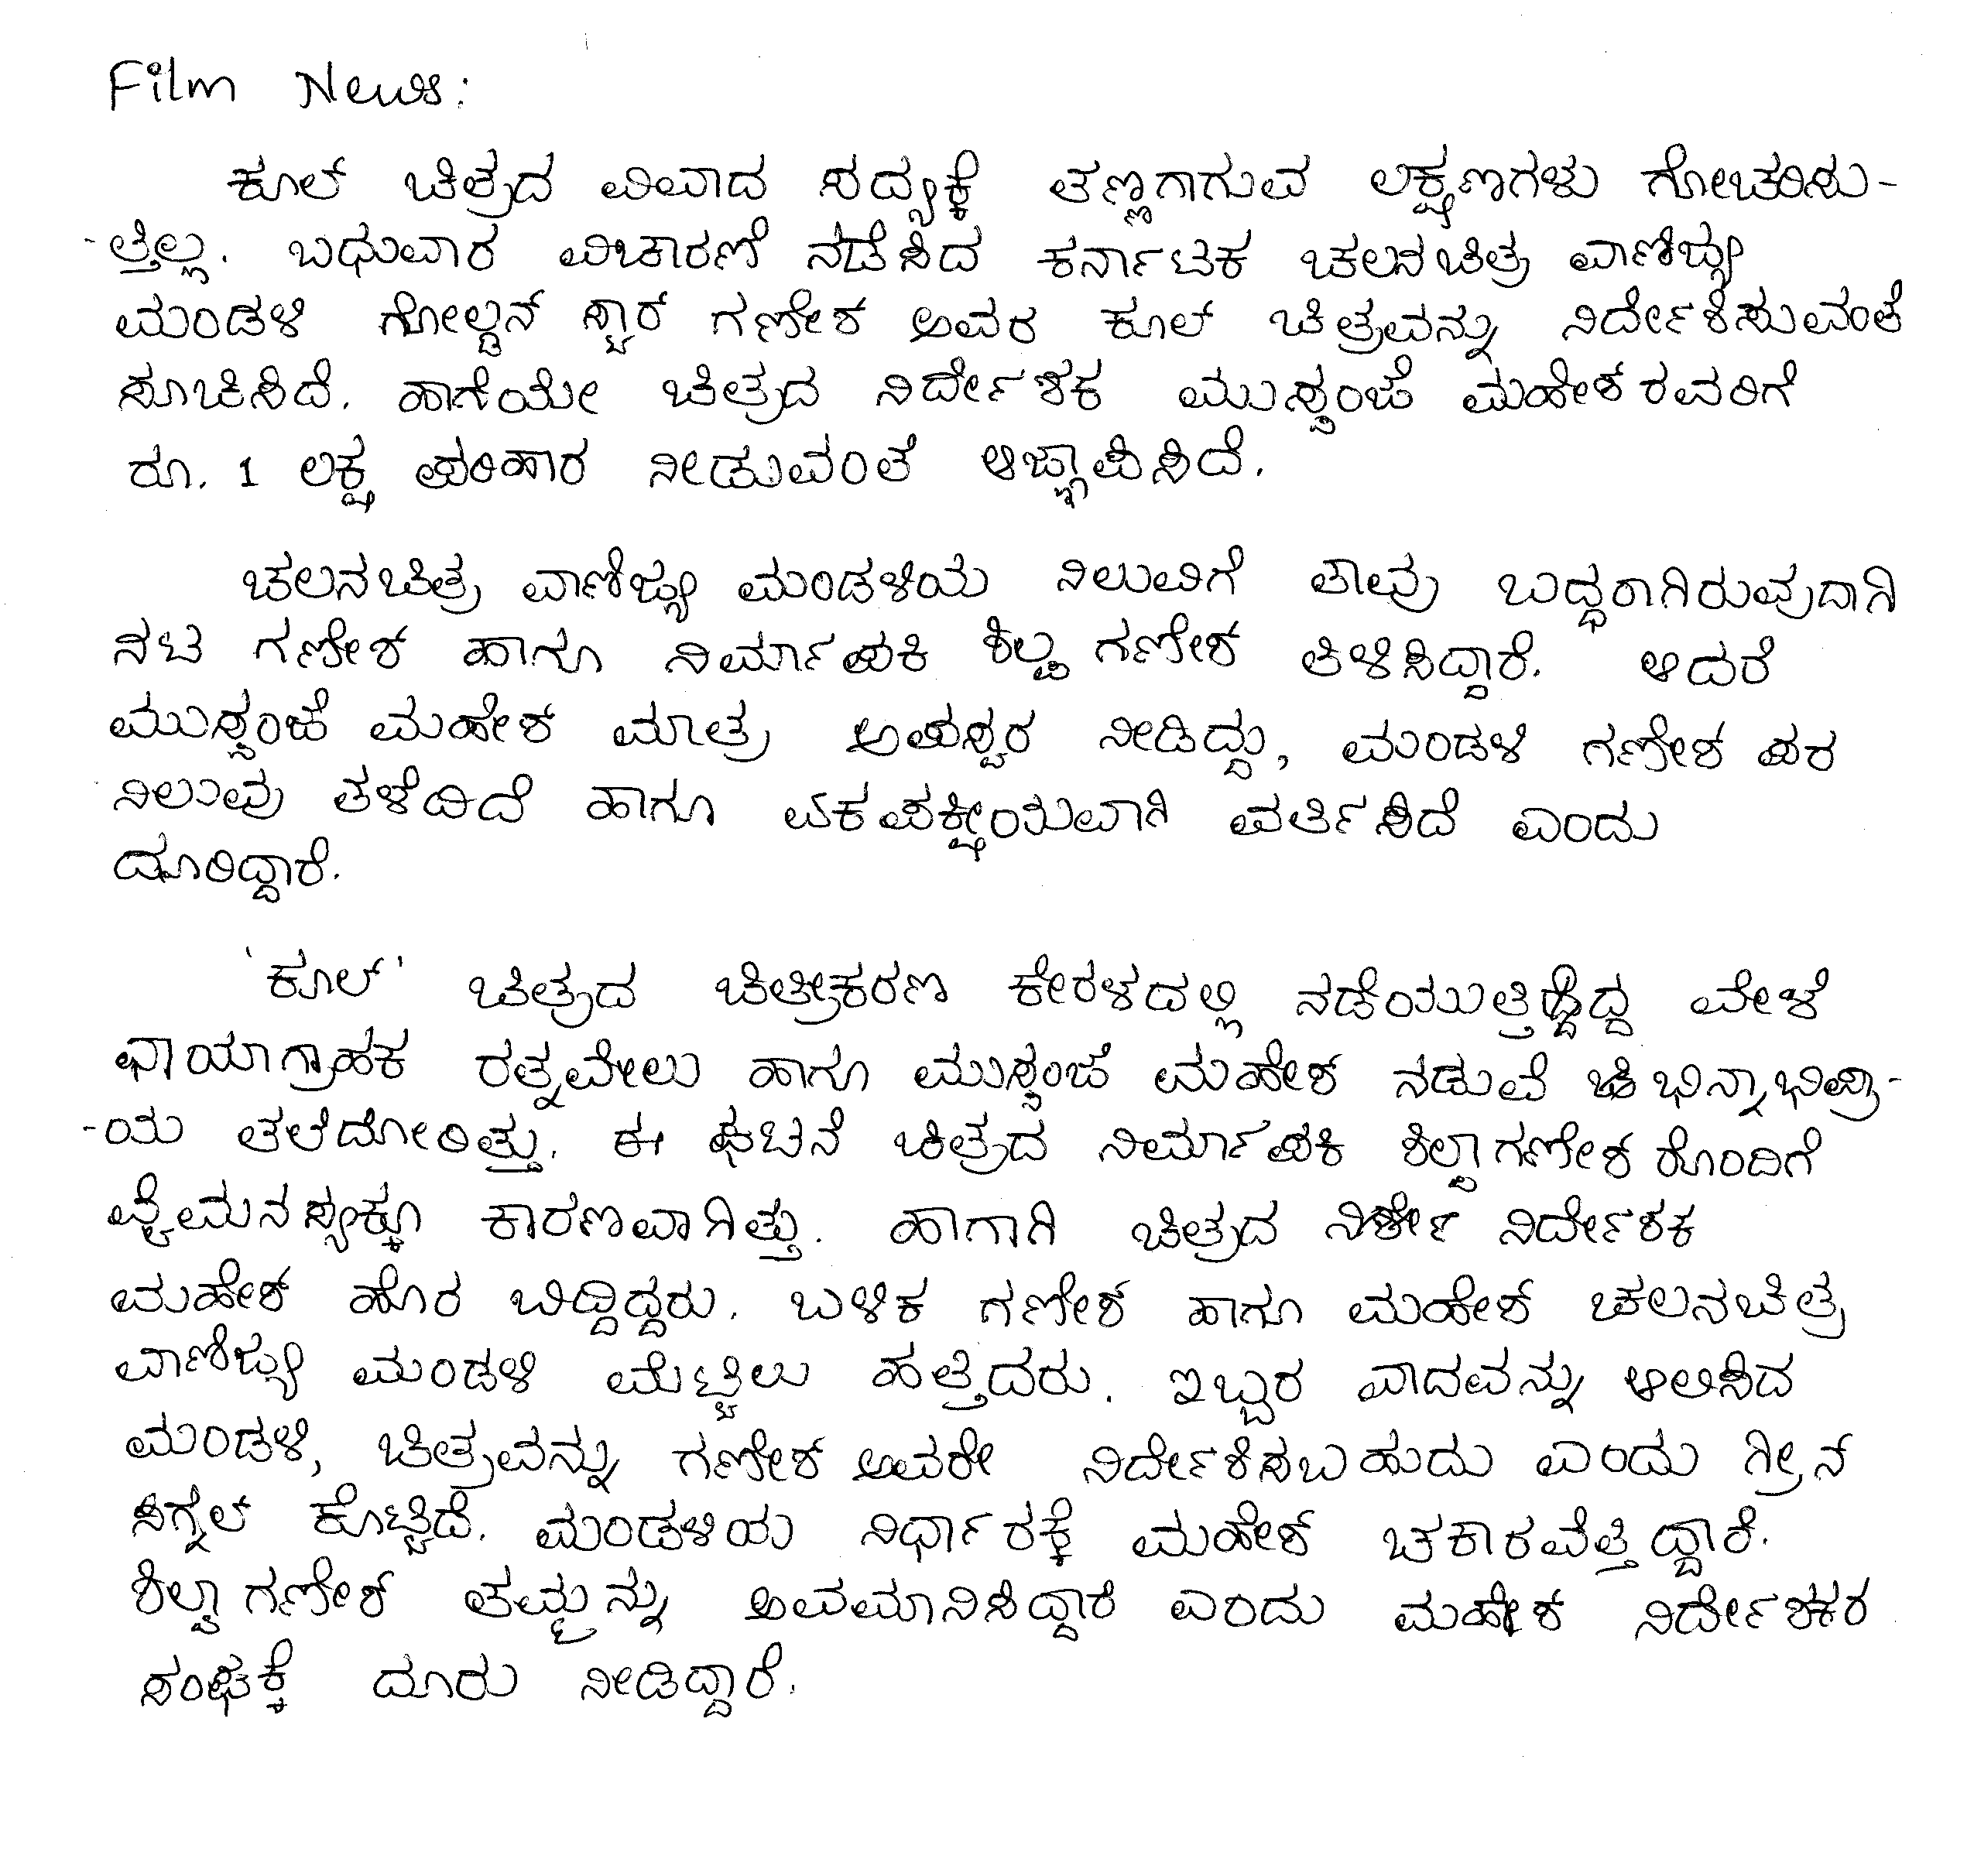 Film News:
ಕೂಲ್ ಚಿತ್ರದ ವಿವಾದ ಸದ್ಯಕ್ಕೆ ತಣ್ಣಗಾಗುವ ಲಕ್ಷಣಗಳು ಗೋಚರಿಸು-
-ತ್ತಿಲ್ಲ. ಬಧುವಾರ ವಿಚಾರಣೆ ನಡೆಸಿದ ಕರ್ನಾಟಕ ಚಲನಚಿತ್ರ ವಾಣಿಜ್ಯ
ಮಂಡಳಿ ಗೋಲ್ಡನ್ ಸ್ಟಾರ್ ಗಣೇಶ ಅವರ ಕೂಲ್ ಚಿತ್ರವನ್ನು ನಿರ್ದೇಶಿಸುವಂತೆ
ಸೂಚಿಸಿದೆ. ಹಾಗೆಯೇ ಚಿತ್ರದ ನಿರ್ದೇಶಕ ಮುಸ್ಸಂಜೆ ಮಹೇಶರವರಿಗೆ
ರೂ. 1 ಲಕ್ಷ ಪರಿಹಾರ ನೀಡುವಂತೆ ಆಜ್ಞಾಪಿಸಿದೆ.
ಚಲನಚಿತ್ರ ವಾಣಿಜ್ಯ ಮಂಡಳಿಯ ನಿಲುವಿಗೆ ತಾವು ಬದ್ಧರಾಗಿರುವುದಾಗಿ
ನಟ ಗಣೇಶ್ ಹಾಗೂ ನಿರ್ಮಾಪಕಿ ಶಿಲ್ಪ ಗಣೇಶ್ ತಿಳಿಸಿದ್ದಾರೆ. ಆದರೆ
ಮುಸ್ಸಂಜೆ ಮಹೇಶ್ ಮಾತ್ರ ಅಪಸ್ವರ ನೀಡಿದ್ದು, ಮಂಡಳಿ ಗಣೇಶ ಪರ
ನಿಲುವು ತಳೆದಿದೆ ಹಾಗೂ ಏಕಪಕ್ಷೀಯವಾಗಿ ವರ್ತಿಸಿದೆ ಎಂದು
ದೂರಿದ್ದಾರೆ.
'ಕೂಲ್' ಚಿತ್ರದ ಚಿತ್ರೀಕರಣ ಕೇರಳದಲ್ಲಿ ನಡೆಯುತ್ತಿದ್ದ ವೇಳೆ
ಛಾಯಾಗ್ರಾಹಕ ರತ್ನವೇಲು ಹಾಗೂ ಮುಸ್ಸಂಜೆ ಮಹೇಶ್ ನಡುವೆ ಭಿನ್ನಾಭಿಪ್ರಾ-
-ಯ ತಲೆದೋರಿತ್ತು. ಈ ಘಟನೆ ಚಿತ್ರದ ನಿರ್ಮಾಪಕಿ ಶಿಲ್ಪಾಗಣೇಶ ರೊಂದಿಗೆ
ವೈಮನಸ್ಯಕ್ಕೂ ಕಾರಣವಾಗಿತ್ತು. ಹಾಗಾಗಿ ಚಿತ್ರದ ನಿರ್ದೇಶಕ
ಮಹೇಶ್ ಹೊರ ಬಿದ್ದಿದ್ದರು. ಬಳಿಕ ಗಣೇಶ್ ಹಾಗೂ ಮಹೇಶ್ ಚಲನಚಿತ್ರ
ವಾಣಿಜ್ಯ ಮಂಡಳಿ ಮೆಟ್ಟಿಲು ಹತ್ತಿದರು. ಇಬ್ಬರ ವಾದವನ್ನು ಆಲಿಸಿದ
ಮಂಡಳಿ, ಚಿತ್ರವನ್ನು ಗಣೇಶ್ ಅವರೇ ನಿರ್ದೇಶಿಸಬಹುದು ಎಂದು ಗ್ರೀನ್
ಸಿಗ್ನಲ್ ಕೊಟ್ಟಿದೆ. ಮಂಡಳಿಯ ನಿರ್ಧಾರಕ್ಕೆ ಮಹೇಶ್ ಚಕಾರವೆತ್ತಿದ್ದಾರೆ.
ಶಿಲ್ಪಾ ಗಣೇಶ್ ತಮ್ಮನ್ನು ಅವಮಾನಿಸಿದ್ದಾರೆ ಎಂದು ಮಹೇಶ ನಿರ್ದೇಶಕರ
ಸಂಘಕ್ಕೆ ದೂರು ನೀಡಿದ್ದಾರೆ.